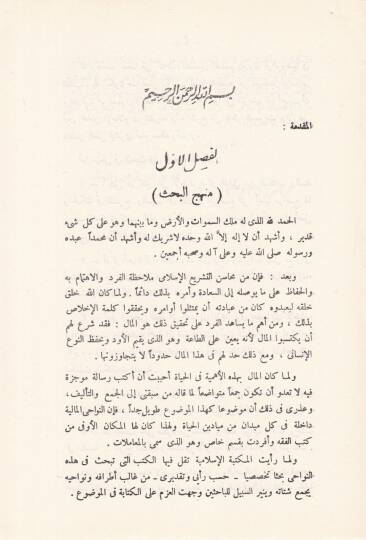 بسم الله الرحمن الرحيم
المقدمة :
الفصل الأول
( منهج البحث )
الحمد لله الذى له ملك السموات والأرض وما بينهما وهو على كل شىء
قدير ، وأشهد أن لا إله إلا الله وحده لاشريك له وأشهد أن محمداً عبده
ورسوله صلى الله عليه وعلى آله وصحبه أجمعين .
وبعد : فإن من محاسن التشريع الإسلامى ملاحظة الفرد والاهتمام به
والحفاظ على ما يوصله إلى السعادة وأمره بذلك دائماً . ولما كان الله خلق
خلقه ليعبدوه كان من عبادته أن يمتثلوا أوامره ويحققوا كلمة الإخلاص
بذلك ، ومن أهم ما يساعد الفرد على تحقيق ذلك هو المال : فقد شرع لهم
أن يكتسبوا المال لأنه يعين على الطاعة وهو الذى يقيم الأود ويحفظ النوع
الإنسانى ، ومع ذلك حد لهم فى هذا المال حدوداً لا يتجاوزونها .
ولما كان المال بهذه الأهمية فى الحياة أحببت أن أكتب رسالة موجزة
فيه لا تعدو أن تكون جمعاً متواضعاً لما قاله من سبقنى إلى الجمع والتأليف،
وعذرى فى ذلك أن موضوعا كهذا الموضوع طويل جداً ، فإن النواحى المالية
داخلة فى كل ميدان من ميادين الحياة ولهذا كان لها المكان الأوفى من
كتب الفقه وأفردت بقسم خاص وهو الذى سمى بالمعاملات .
ولما رأيت المكتبة الإسلامية تقل فيها الكتب التى تبحث فى هذه
النواحى بحثا تخصصيا - حسب رأيى وتقديرى - من غالب أطرافه ونواحيه
يجمع شتاته وينير السبيل للباحثين وجهت العزم على الكتابة فى الموضوع .